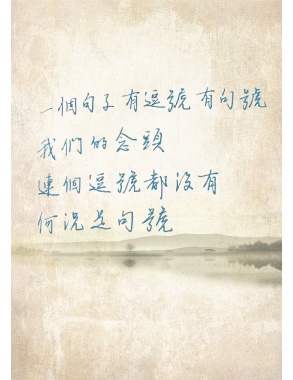 一個句子有逗號有句號
我們的念頭
連個逗號都沒有
何況是句號